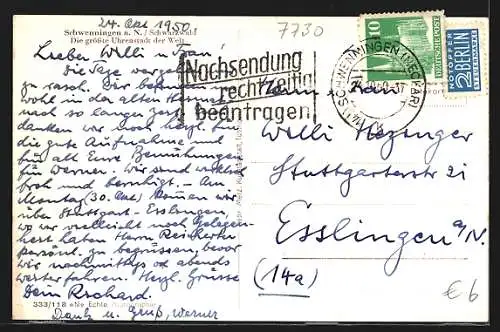 24. Okt 1950
7730
Schwenningen a. N. / Schwarzwald
Die größte Uhrenstadt der Welt
Lieber Willi u. Frau!
Die Tage vergehen
zu rasch. Wir befinden uns
wohl in der alten Heimat
nach so langer Zeit
danken wir noch herzl. für
die gute Aufnahme und
für all Eure Bemühungen
für Werner. Wir sind wirklich
froh und beruhigt. - Am
Montag (30. Okt) kommen wir
über Stuttgart - Esslingen,
wo wir vielleicht noch Gelegen-
heit haben Herrn
persönl. zu begrüssen, bevor
wir nachmittags od abends
weiterfahren. Herzl. Grüsse
Dein Richard.
Dank u. Gruß, Werner
333/118 Echte
Nachsendung
rechtzeitig
beantragen
SCHWENNINGEN (NECKAR)
10
DEUTSCHE POST
NOTOPFER
2 BERLIN
STEUERMARKE
Herrn
Willi Hezinger
Stuttgarterstr 21
Esslingen a/N.
(14a)
€ 6